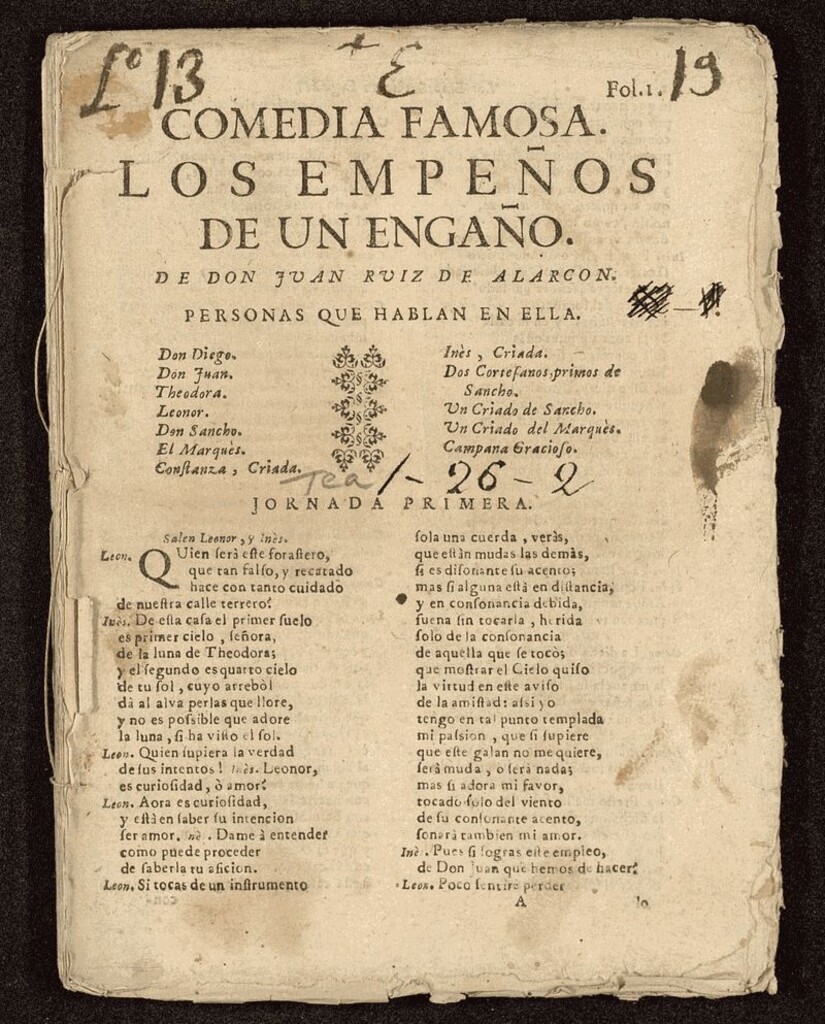 Lº 13 + E Fol.1. 19
COMEDIA FAMOSA.
LOS EMPEÑOS
DE UN ENGAÑO.
DE DON JUAN RUIZ DE ALARCON.
PERSONAS QUE HABLAN EN ELLA.
Don Diego.
Don Juan.
Theodora.
Leonor.
Don Sancho.
El Marquès.
Conſtanza, Criada.
Inès, Criada.
Dos Corteſanos, primos de
Sancho.
Un Criado de Sancho.
Un Criado del Marquès.
Campana Gracioſo.
Tea 1-26-2
JORNADA PRIMERA.
Salen Leonor, y Inès.
Leon. QUien ſerà eſte foraſtero,
que tan falſo, y recatado
hace con tanto cuidado
de nueſtra calle terrero?
Inès. De eſta caſa el primer ſuelo
es primer cielo, ſeñora,
de la luna de Theodora;
y el ſegundo es quarto cielo
de tu ſol, cuyo arrebòl
dà al alva perlas que llore,
y no es poſsible que adore
la luna, ſi ha viſto el ſol.
Leon. Quien ſupiera la verdad
de ſus intentos! Inès. Leonor,
es curioſidad, ò amor?
Leon. Aora es curioſidad,
y eſtà en ſaber ſu intencion
ſer amor. Inè. Dame à entender
como puede proceder
de ſaberla tu aficion.
Leon. Si tocas de un inſtrumento
ſola una cuerda, veràs,
que eſtàn mudas las demàs,
ſi es diſonante ſu acento;
mas ſi alguna eſtà en diſtancia,
y en conſonancia debida,
ſuena ſin tocarla, herida
ſolo de la conſonancia
de aquella que ſe tocò;
que moſtrar el Cielo quiſo
la virtud en eſte aviſo
de la amiſtad: aſsi yo
tengo en tal punto templada
mi paſsion, que ſi ſupiere
que eſte galan no me quiere,
ſerà muda, o ſerà nada;
mas ſi adora mi favor,
tocado ſolo del viento
de ſu conſonante acento,
ſonarà tambien mi amor.
Inè. Pues ſi logras eſte empleo,
de Don Juan què hemos de hacer?
Leon. Poco ſentirè perder
A lo